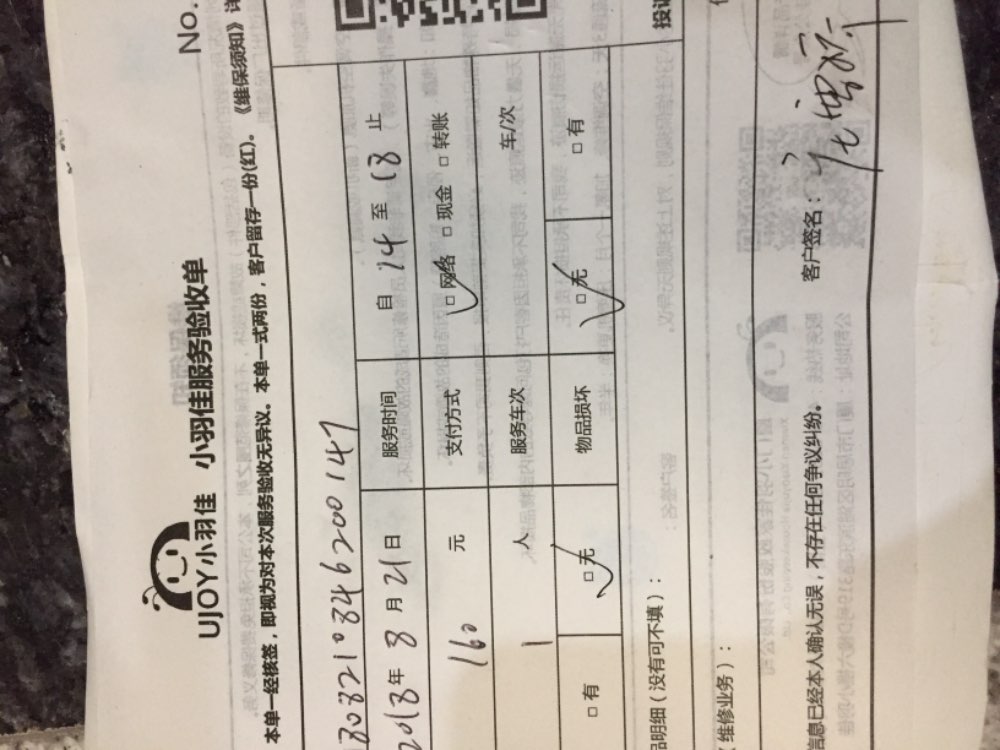 No.
UJOY小羽佳 小羽佳服务验收单
本单一经核签，即视为对本次服务验收无异议。本单一式两份，客户留存一份(红)。《维保须知》详
投诉
180821034620014
2018年8月21日 服务时间 自 14 至 18 止
160 元 支付方式 □网络 □现金 □转账
1 人 服务车次 车/次
□有 □无 物品损坏 □无 □有
品明细（没有可不填）：
（维修业务）：
信息已经本人确认无误，不存在任何争议纠纷。 客户签名：